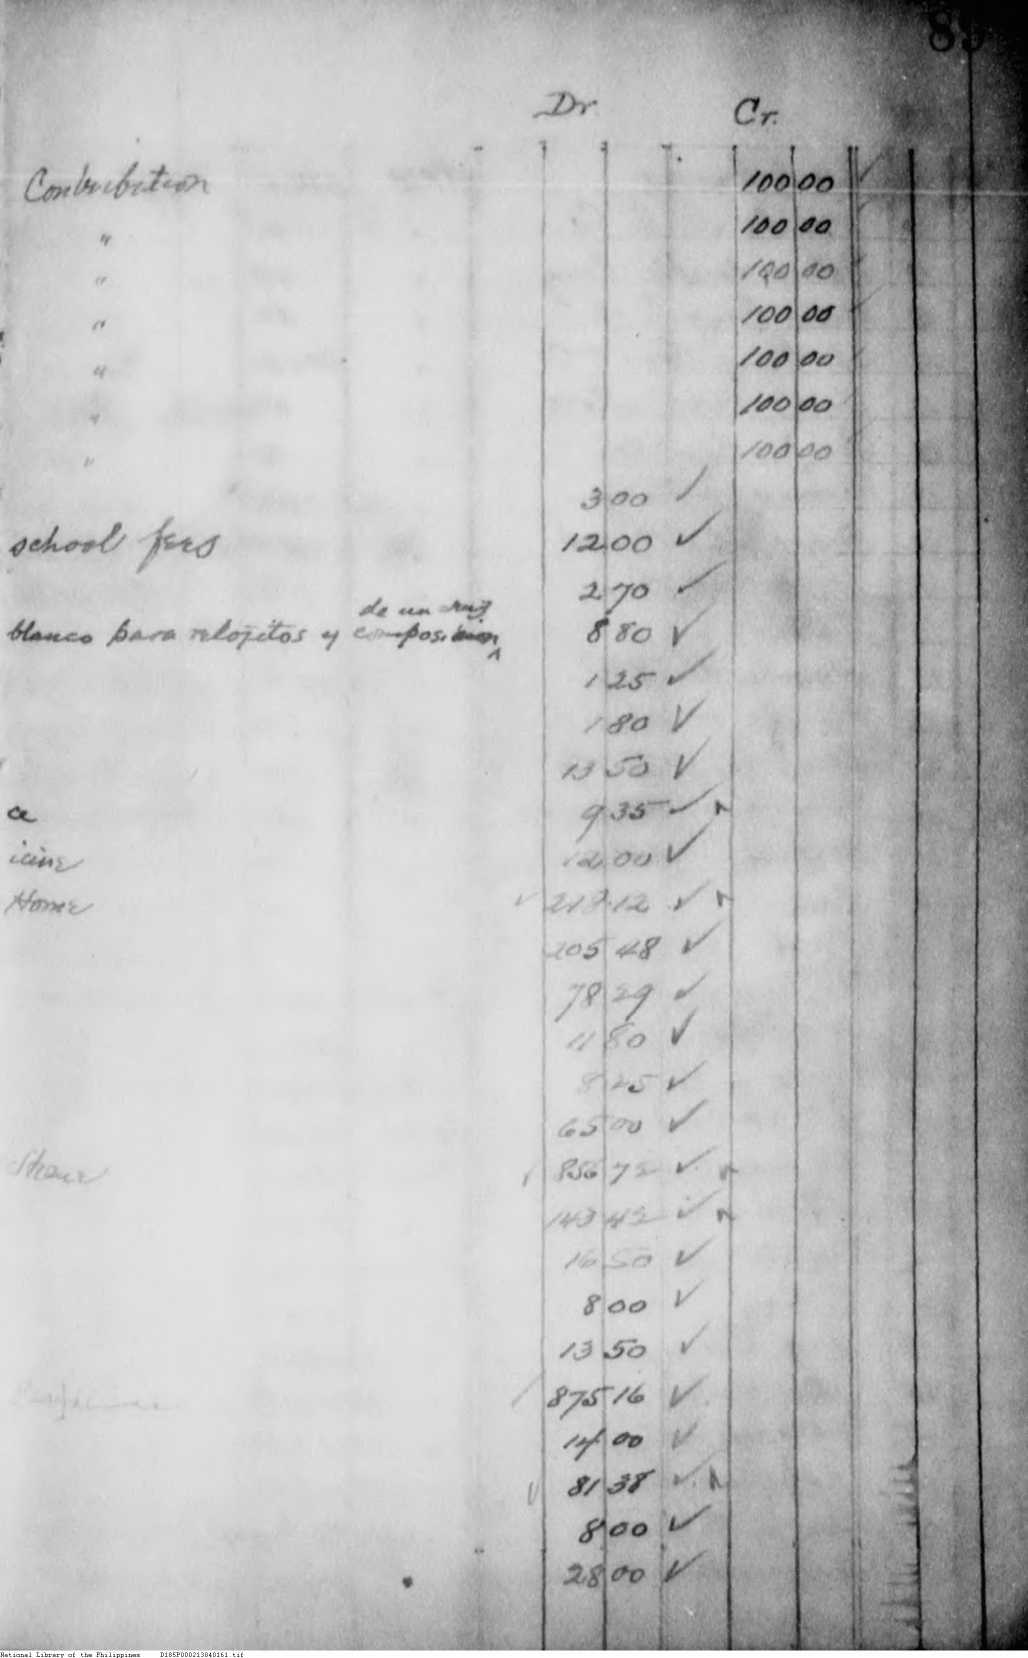 89
Dr. Cr.
Contribution 100 00
" 100 00
" 100 00
" 100 00
" 100 00
" 100 00
" 100 00
3 00 ✓
school fees 12 00 ✓
2 70 ✓
de un
blanco para relojitos y composicion 8 80 ✓
1 25 ✓
1 80 ✓
13 50 ✓
ce 9 35 ✓
icine 12 00 ✓
Home ✓ 218 12 ✓
205 48 ✓
78 29 ✓
11 80 ✓
8 25 ✓
65 00 ✓
856 72 ✓
143 42 ✓
16 50 ✓
8 00 ✓
13 50 ✓
875 16 ✓
14 00 ✓
81 38 ✓
8 00 ✓
28 00 ✓
National Library of the Philippines D185P000213040161.tif